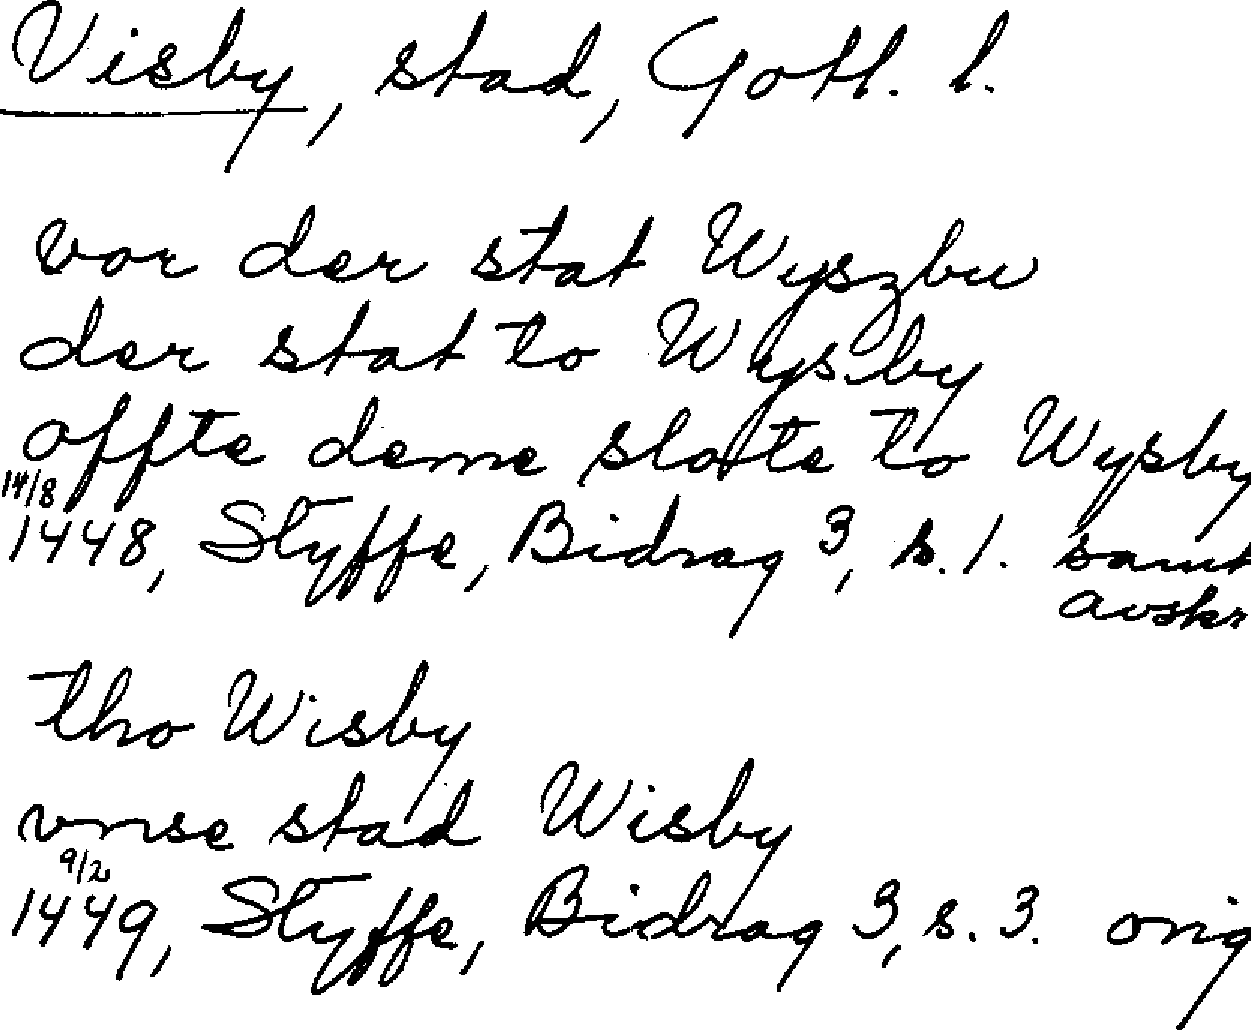 Visby, stad, Gotl. l.
vor der stat Wyszbu
der stat to Wysby
offte deme slotte to Wysby
14/8
1448, Styffe, Bidrag 3, s. 1. samt
avskr
tho Wisby
vnse stad Wisby
9/2
1449, Styffe, Bidrag 3, s. 3. orig